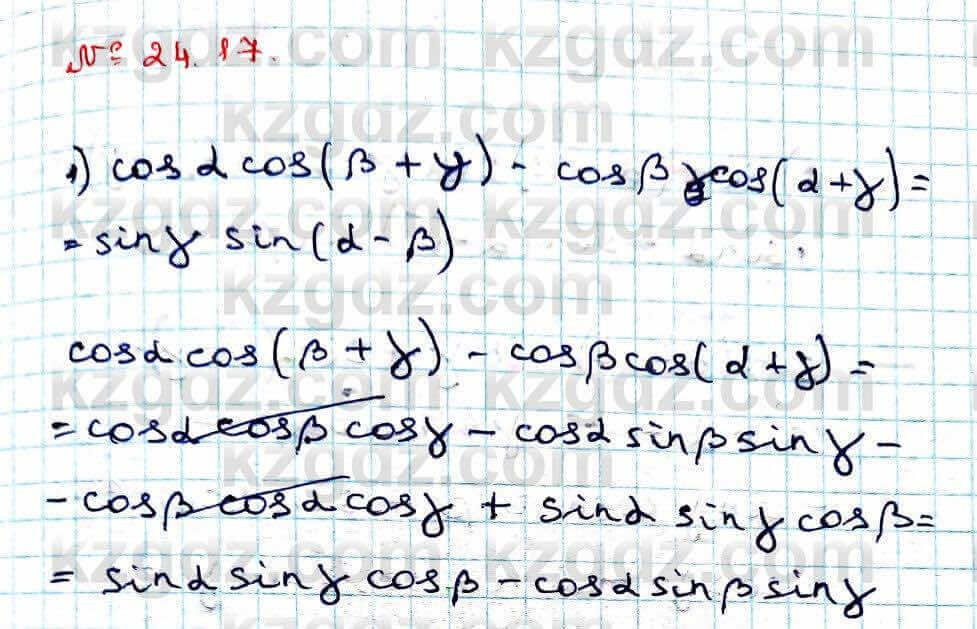 № 24.17.
1) cos α cos(β + γ) - cos β cos(α + γ) =
= sin γ sin(α - β)
cos α cos(β + γ) - cos β cos(α + γ) =
= cos α cos β cos γ - cos α sin β sin γ -
- cos β cos α cos γ + sin α sin γ cos β =
= sin α sin γ cos β - cos α sin β sin γ
kzgdz.com